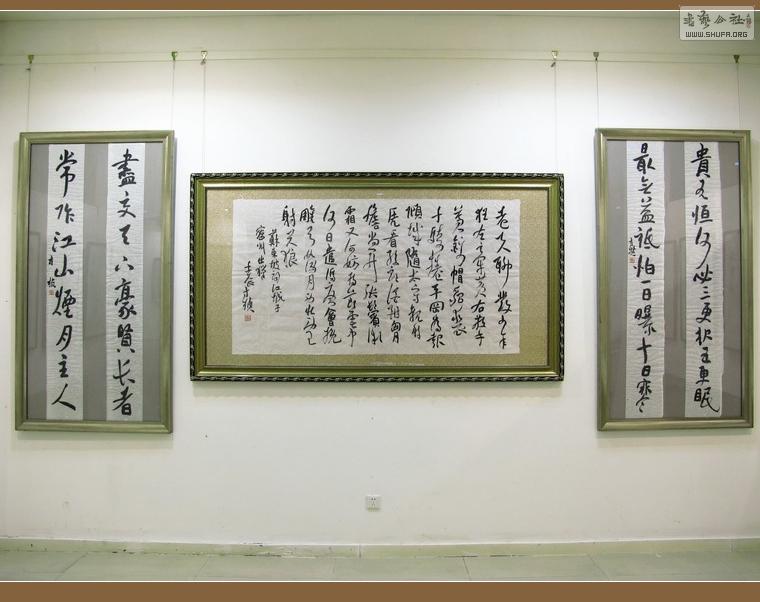 書藝公社
WWW.SHUFA.ORG
貴有恒何必三更起五更眠
最無益祇怕一日曝十日寒
老夫聊發少年
狂左牽黃右擎
蒼錦帽貂裘
千騎卷平岡為報
傾城隨太守親射
虎看孫郎酒酣胸
膽尚開張鬢微
霜又何妨持節雲中
何日遣馮唐會挽
雕弓如滿月西北望
射天狼
蘇東坡詞江城子
密州出獵
壬辰
盡交天下豪賢長者
常作江山煙月主人